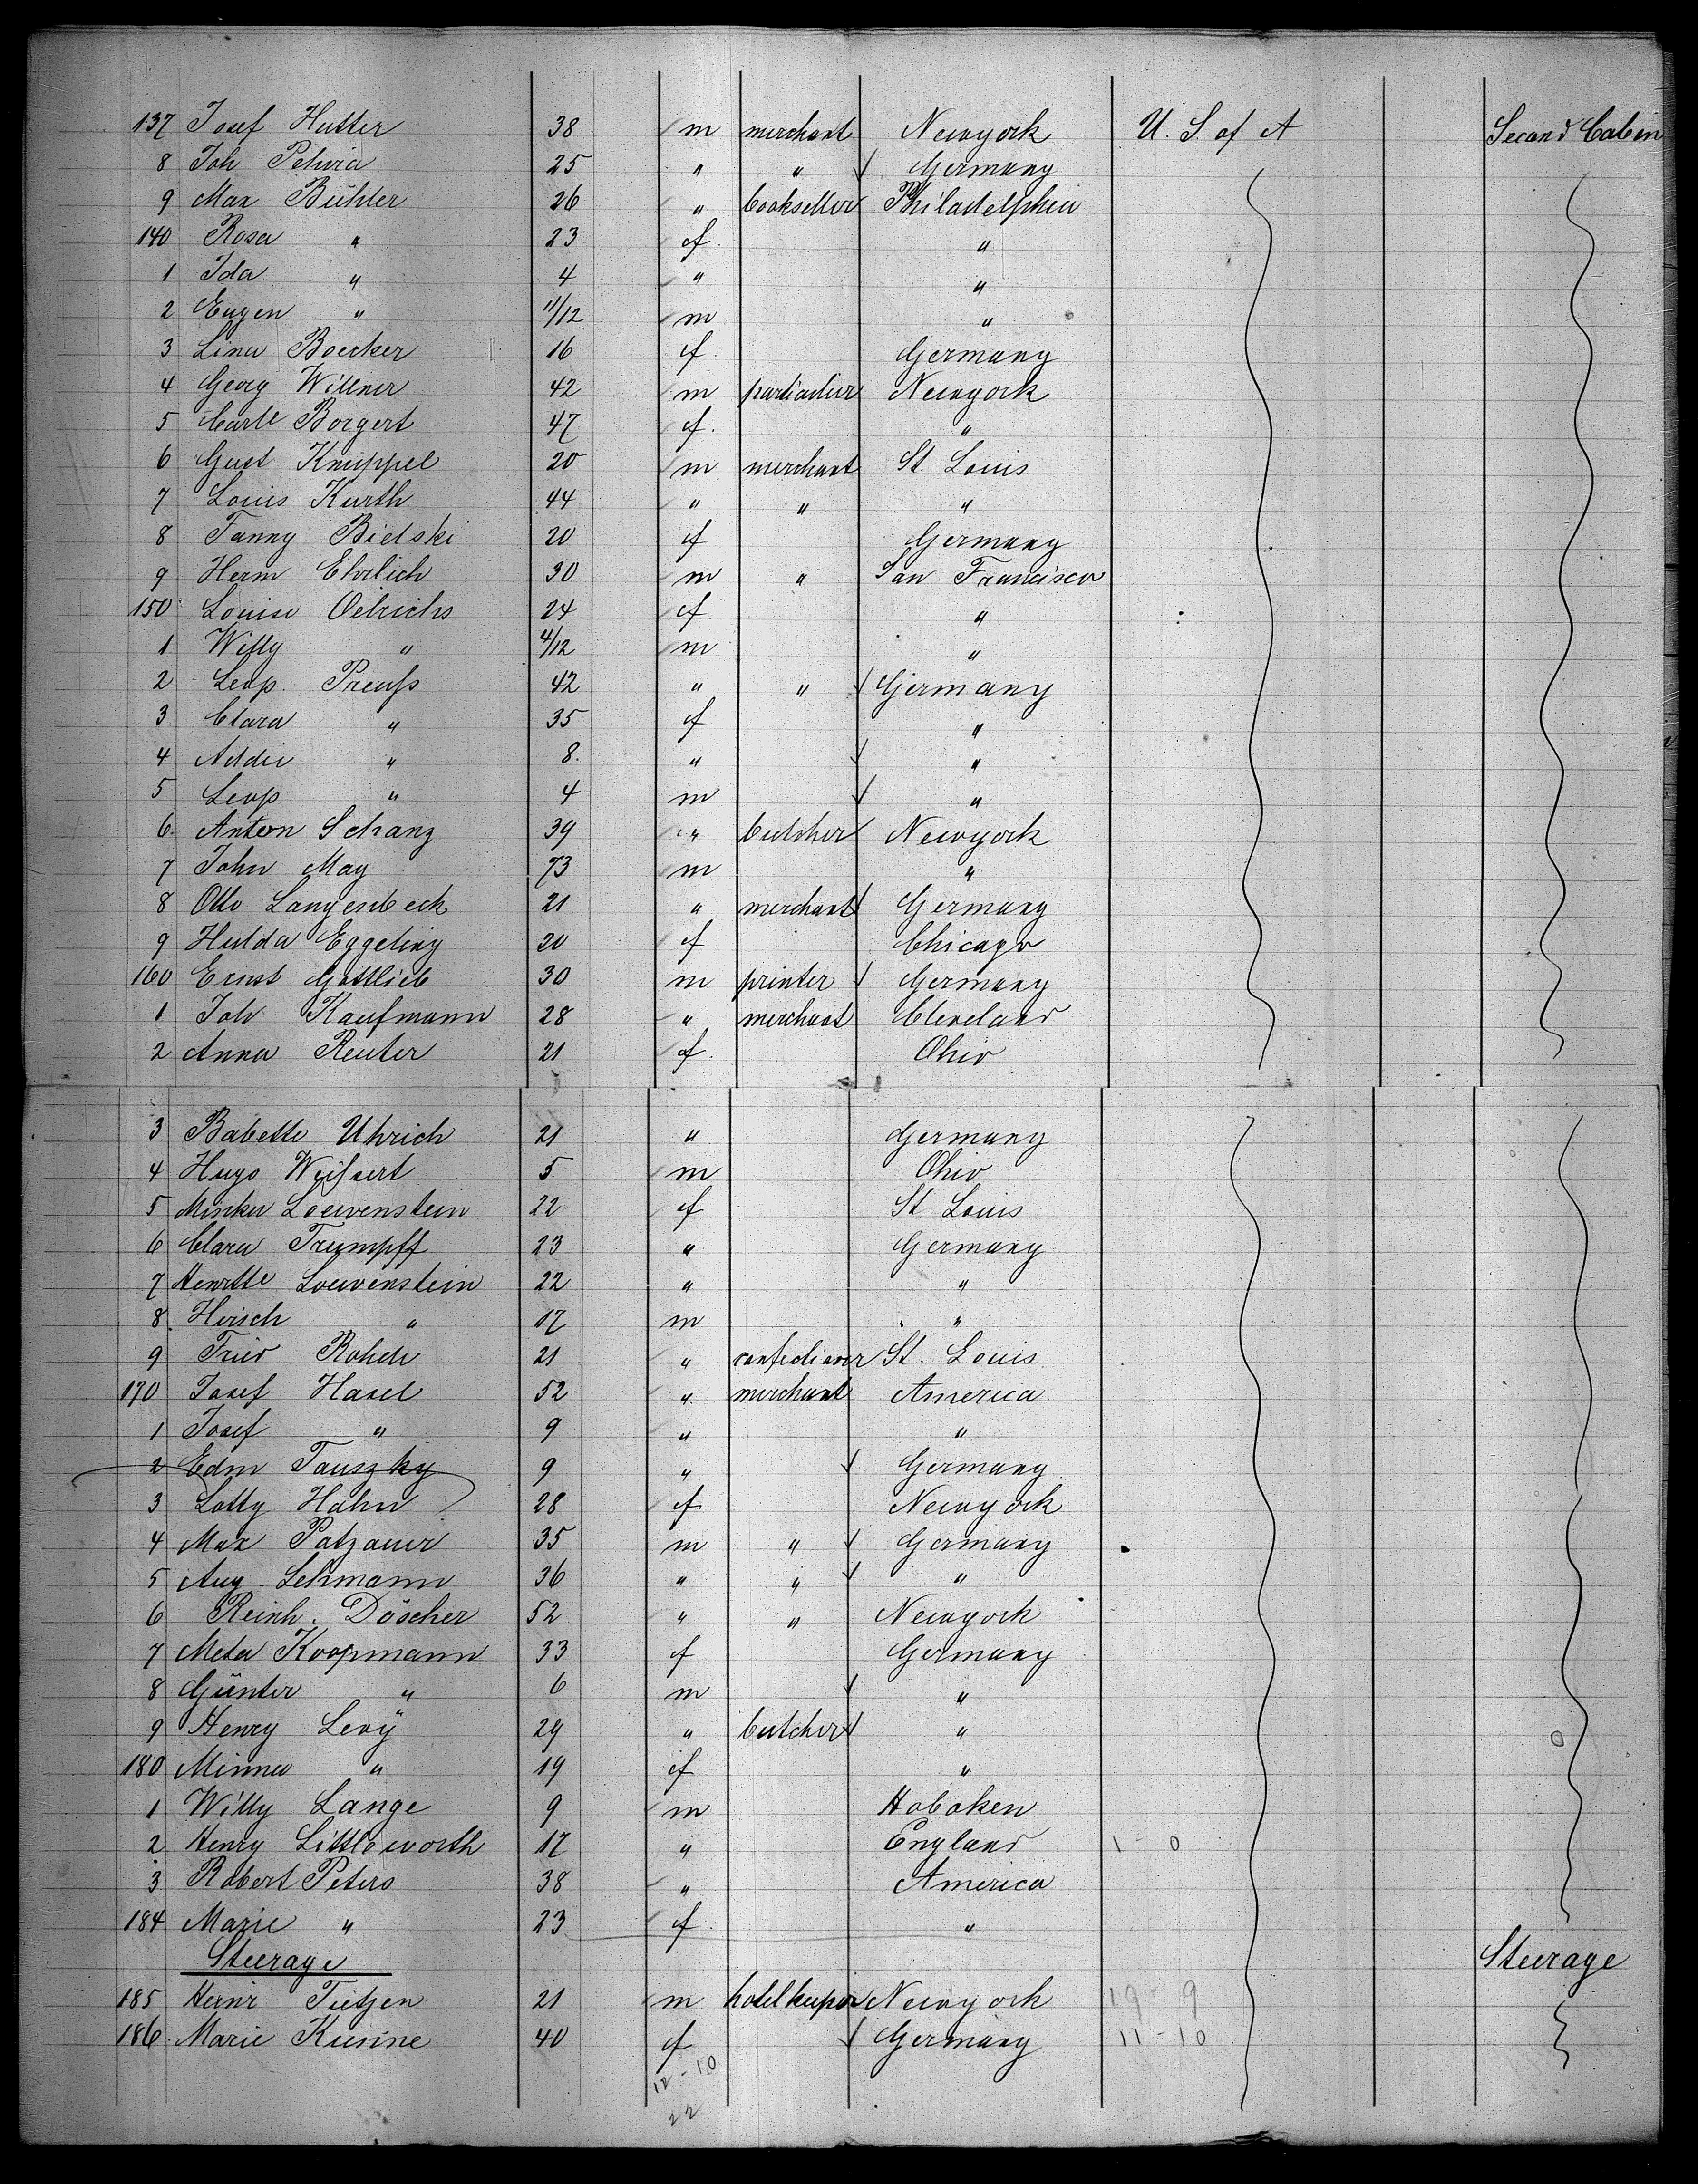 137 Josef Hutter 38 m merchant Newyork U. S. of A Second Cabin
8 Joh 25 " " Germany
9 Max Bühler 26 " bookseller Philadelphia
140 Rosa " 23 f. "
1 Ida " 4 " "
2 Eugen " 11/12 m "
3 Lina Boecker 16 f. Germany
4 Georg Willner 42 m Newyork
5 Borgert 47 f. "
6 Gust Knuppel 20 m merchant St Louis
7 Louis Kurth 44 " " "
8 Fanny Bielski 20 f Germany
9 Herm Ehrlich 30 m " San Francisco
150 Louise Oelrichs 24 f "
1 Willy " 4/12 m "
2 Leop. Preuß 42 " " Germany
3 Clara " 35 f "
4 Addie " 8. " "
5 Leop " 4 m "
6. Anton Schanz 39 " butcher Newyork
7 John May 73 m "
8 Otto Langenbeck 21 " merchant Germany
9 Hulda Eggeling 20 f Chicago
160 Ernst Gottlieb 30 m printer Germany
1 Joh Kaufmann 28 " merchant Cleveland
2 Anna Reuter 21 f. Ohio
3 Babette Uhrich 21 " Germany
4 Hugo 5 m Ohio
5 Loewenstein 22 f St Louis
6 Clara Trumpff 23 " Germany
7 Henrtte Loewenstein 22 " "
8. Hirsch " 17 m "
9 Fried Rohde 21 " confectioner St. Louis
170 Josef Hasel 52 " merchant America
1 Josef " 9 " "
2 Edm Tauszky 9 " Germany
3 Lotty Hahn 28 f Newyork
4 Max Patzauer 35 m " Germany
5 Aug. Lehmann 36 " " "
6 Reinh. Döscher 52 " " Newyork
7 Meta Koopmann 33 f Germany
8 Günter " 6 m "
9 Henry Levÿ 29 " butcher "
180 Minna " 19 f "
1 Willy Lange 9 m Hoboken
2 Henry Littleworth 17 " England 1 - 0
3 Robert Peters 38 " America
184 Marie " 23 f. "
Steerage Steerage
185 Heinr Tietjen 21 m hotelkeeper Newyork 19 - 9
186 Marie 40 f Germany 11 - 10
12 - 10
22